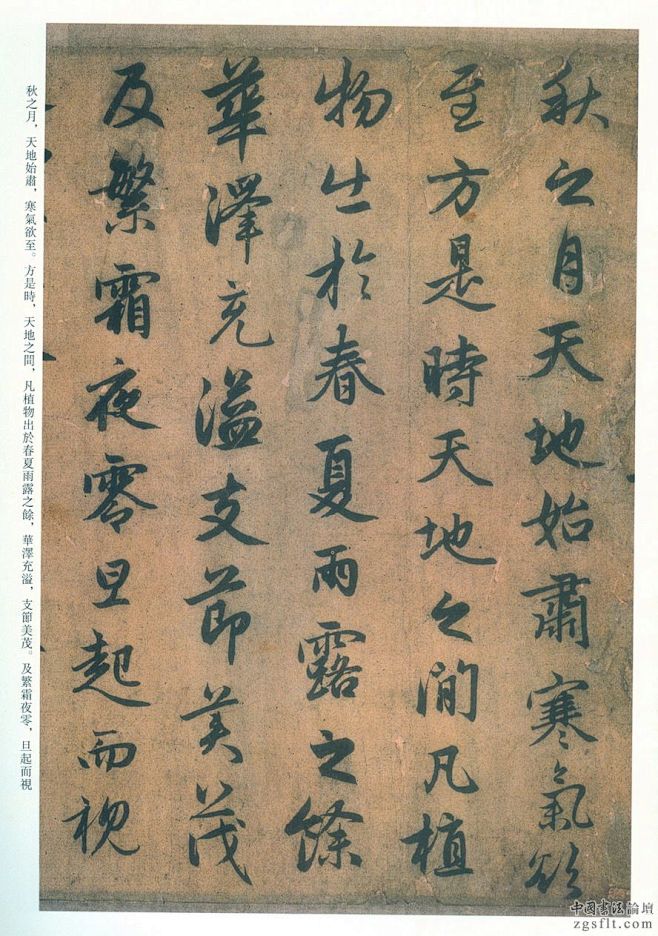 秋之月天地始肅寒氣欲
至方是時天地之間凡植
物出於春夏雨露之餘
華澤充溢支節美茂
及繁霜夜零旦起而視
秋之月，天地始肅，寒氣欲至。方是時，天地之間，凡植物出於春夏雨露之餘，華澤充溢，支節美茂。及繁霜夜零，旦起而視
中國書法論壇
zgsflt.com